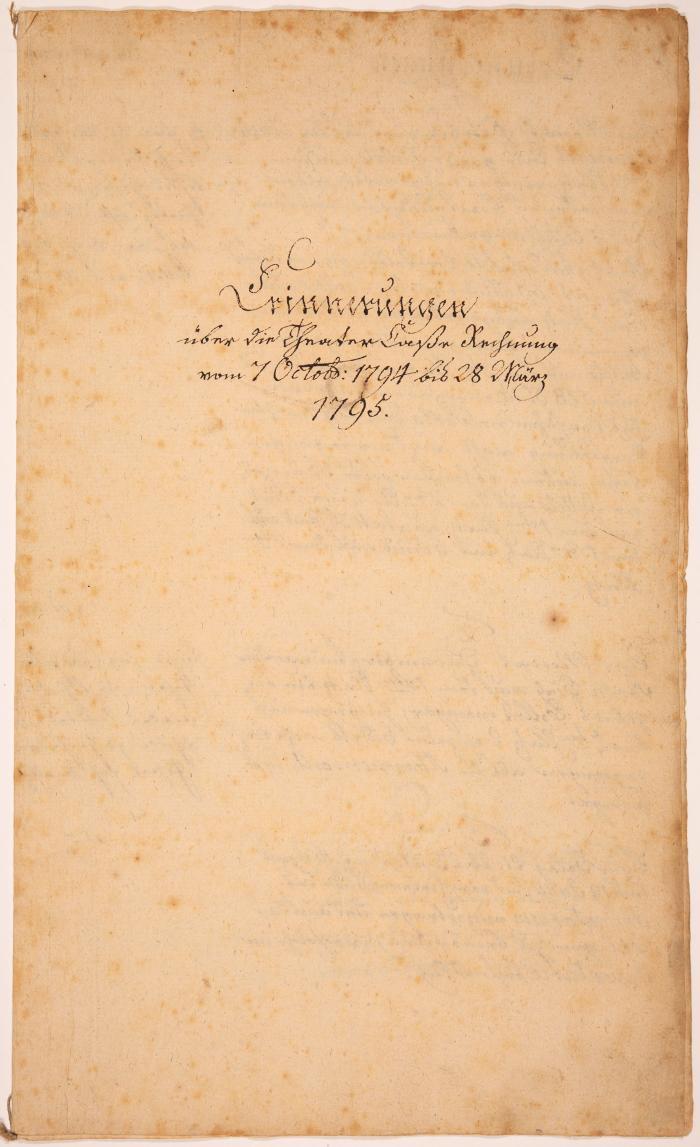 Erinnerungen
über die Theater Caße Rechnung
vom 7 Octob: 1794 bis 28 März
1795.